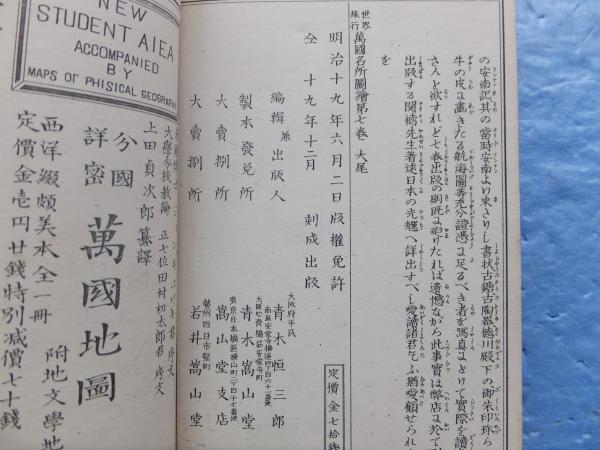 の安南記其の當時安南より來さりし書狀古鏡古陶器德川殿下の御朱印珎ら
牛の皮に畵きたる航海圖等充分證憑に足るべき者を寫眞
さんと欲すれど七卷出版の期既に迫りたれば遺憾ながら此事實は弊店に於て
出版する関德先生著述日本の光輝へ詳出すべし愛讀諸君乞ふ猶愛顧せられ
を
世界旅行 萬國名所圖繪第七卷 大尾
明治十九年六月二日版權免許
仝 十九年十二月 刺成出版
編輯兼出版人
大阪府平民
青木恒三郎
製本發兌所
青木嵩山堂
大賣捌所
東京日本橋區
嵩山堂支店
大賣捌所
勢州四日市竪町
若井嵩山堂
定價金七拾
NEW
STUDENT ATEA
ACCOMPANIED
BY
MAPS OF PHISICAL GEOGRAPHY
大學分校教諭 正七位田村初太郎君 序文
上田貞次郎纂譯
分國詳密 萬國地圖
附地文學地
西洋綴頗美本全一冊
定價金壱円廿錢特別減價七十錢